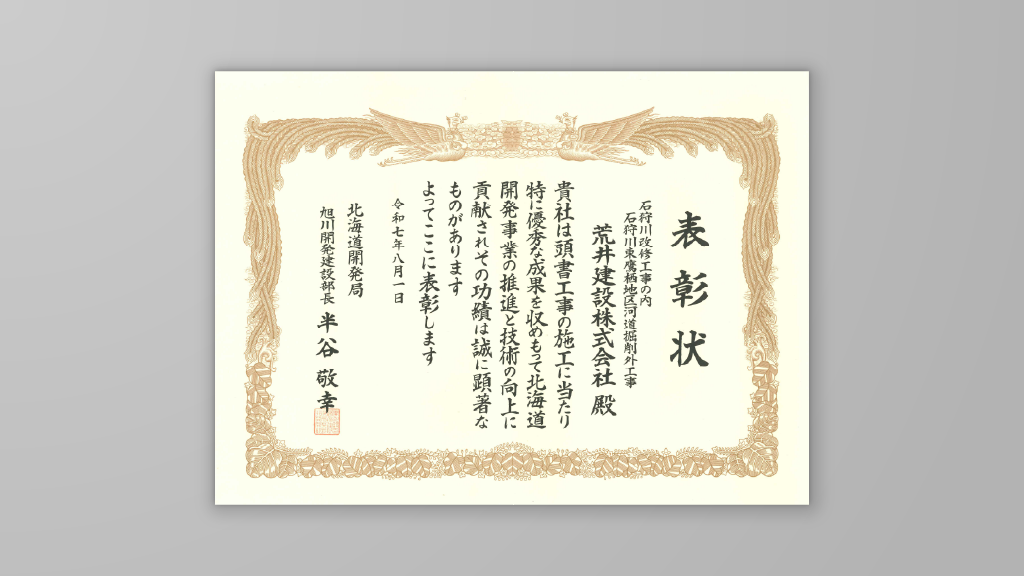 表彰状
石狩川改修工事の内
石狩川東鷹栖地区河道掘削外工事
荒井建設株式会社 殿
貴社は頭書工事の施工に当たり
特に優秀な成果を収めもって北海道
開発事業の推進と技術の向上に
貢献されその功績は誠に顕著な
ものがあります
よってここに表彰します
令和七年八月一日
北海道開発局
旭川開発建設部長 半谷 敬幸